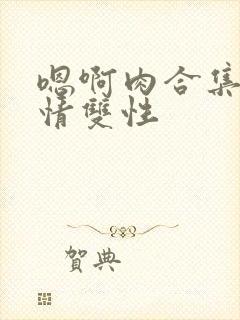 嗯啊肉合集
情雙性
賀典